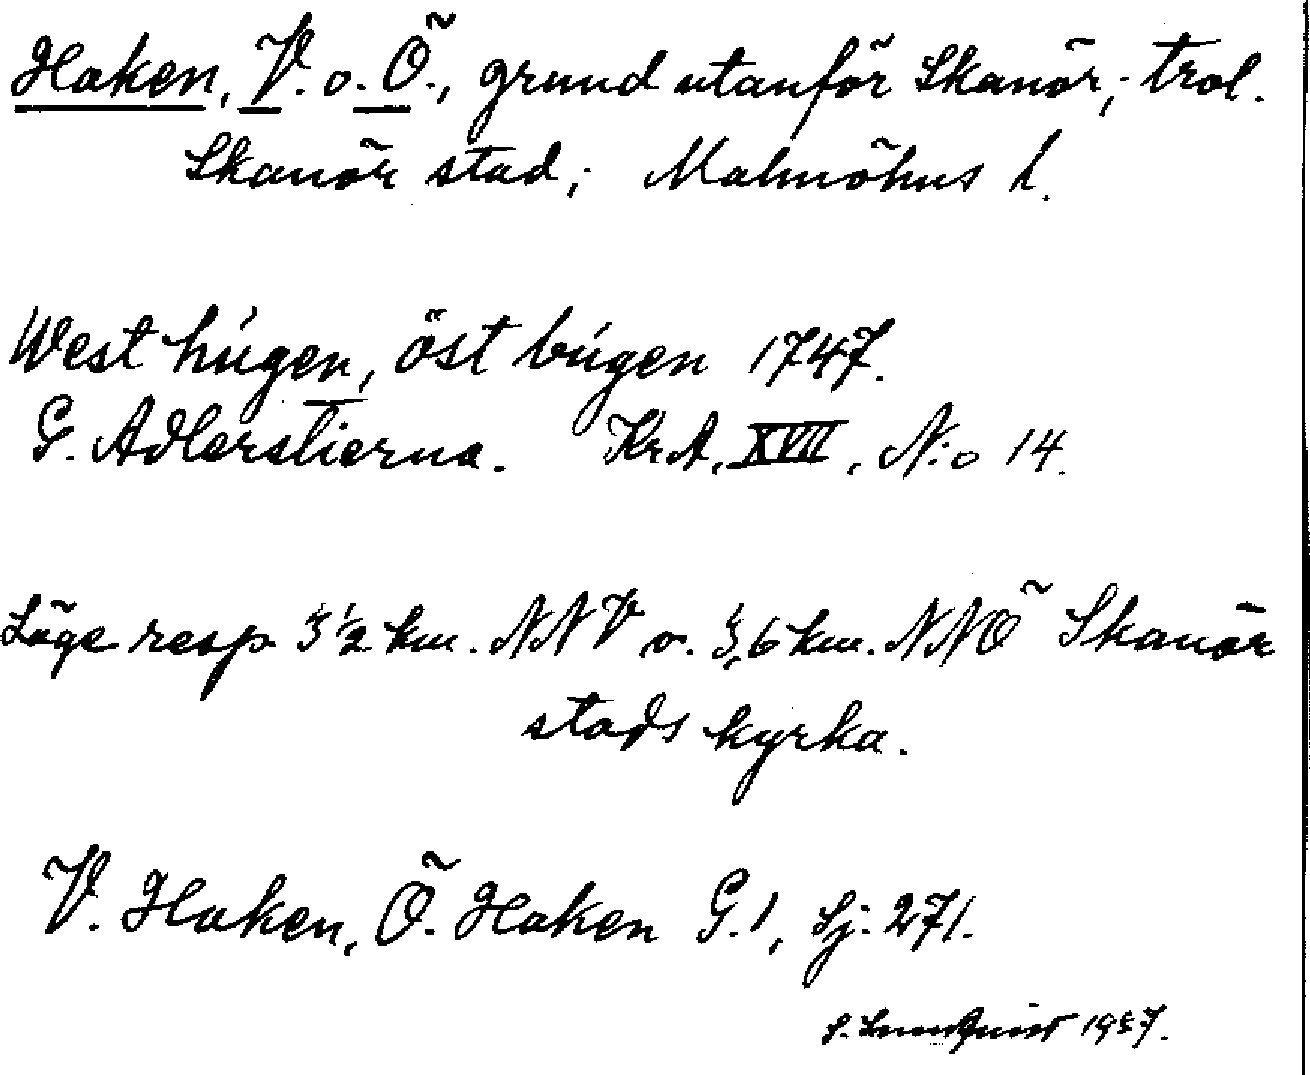 Haken, V. o. Ö., grund utanför Skanör; trol.
Skanör stad; Malmöhus l.
West húgen, öst búgen 1747.
G. Adlerstierna. Kr.A. XVII, N:o 14.
Läge resp 3 1/2 km. NNV o. 3,6 km. NNÖ Skanör
stads kyrka.
V. Haken, Ö. Haken G.1, Sj. 271.
1957.